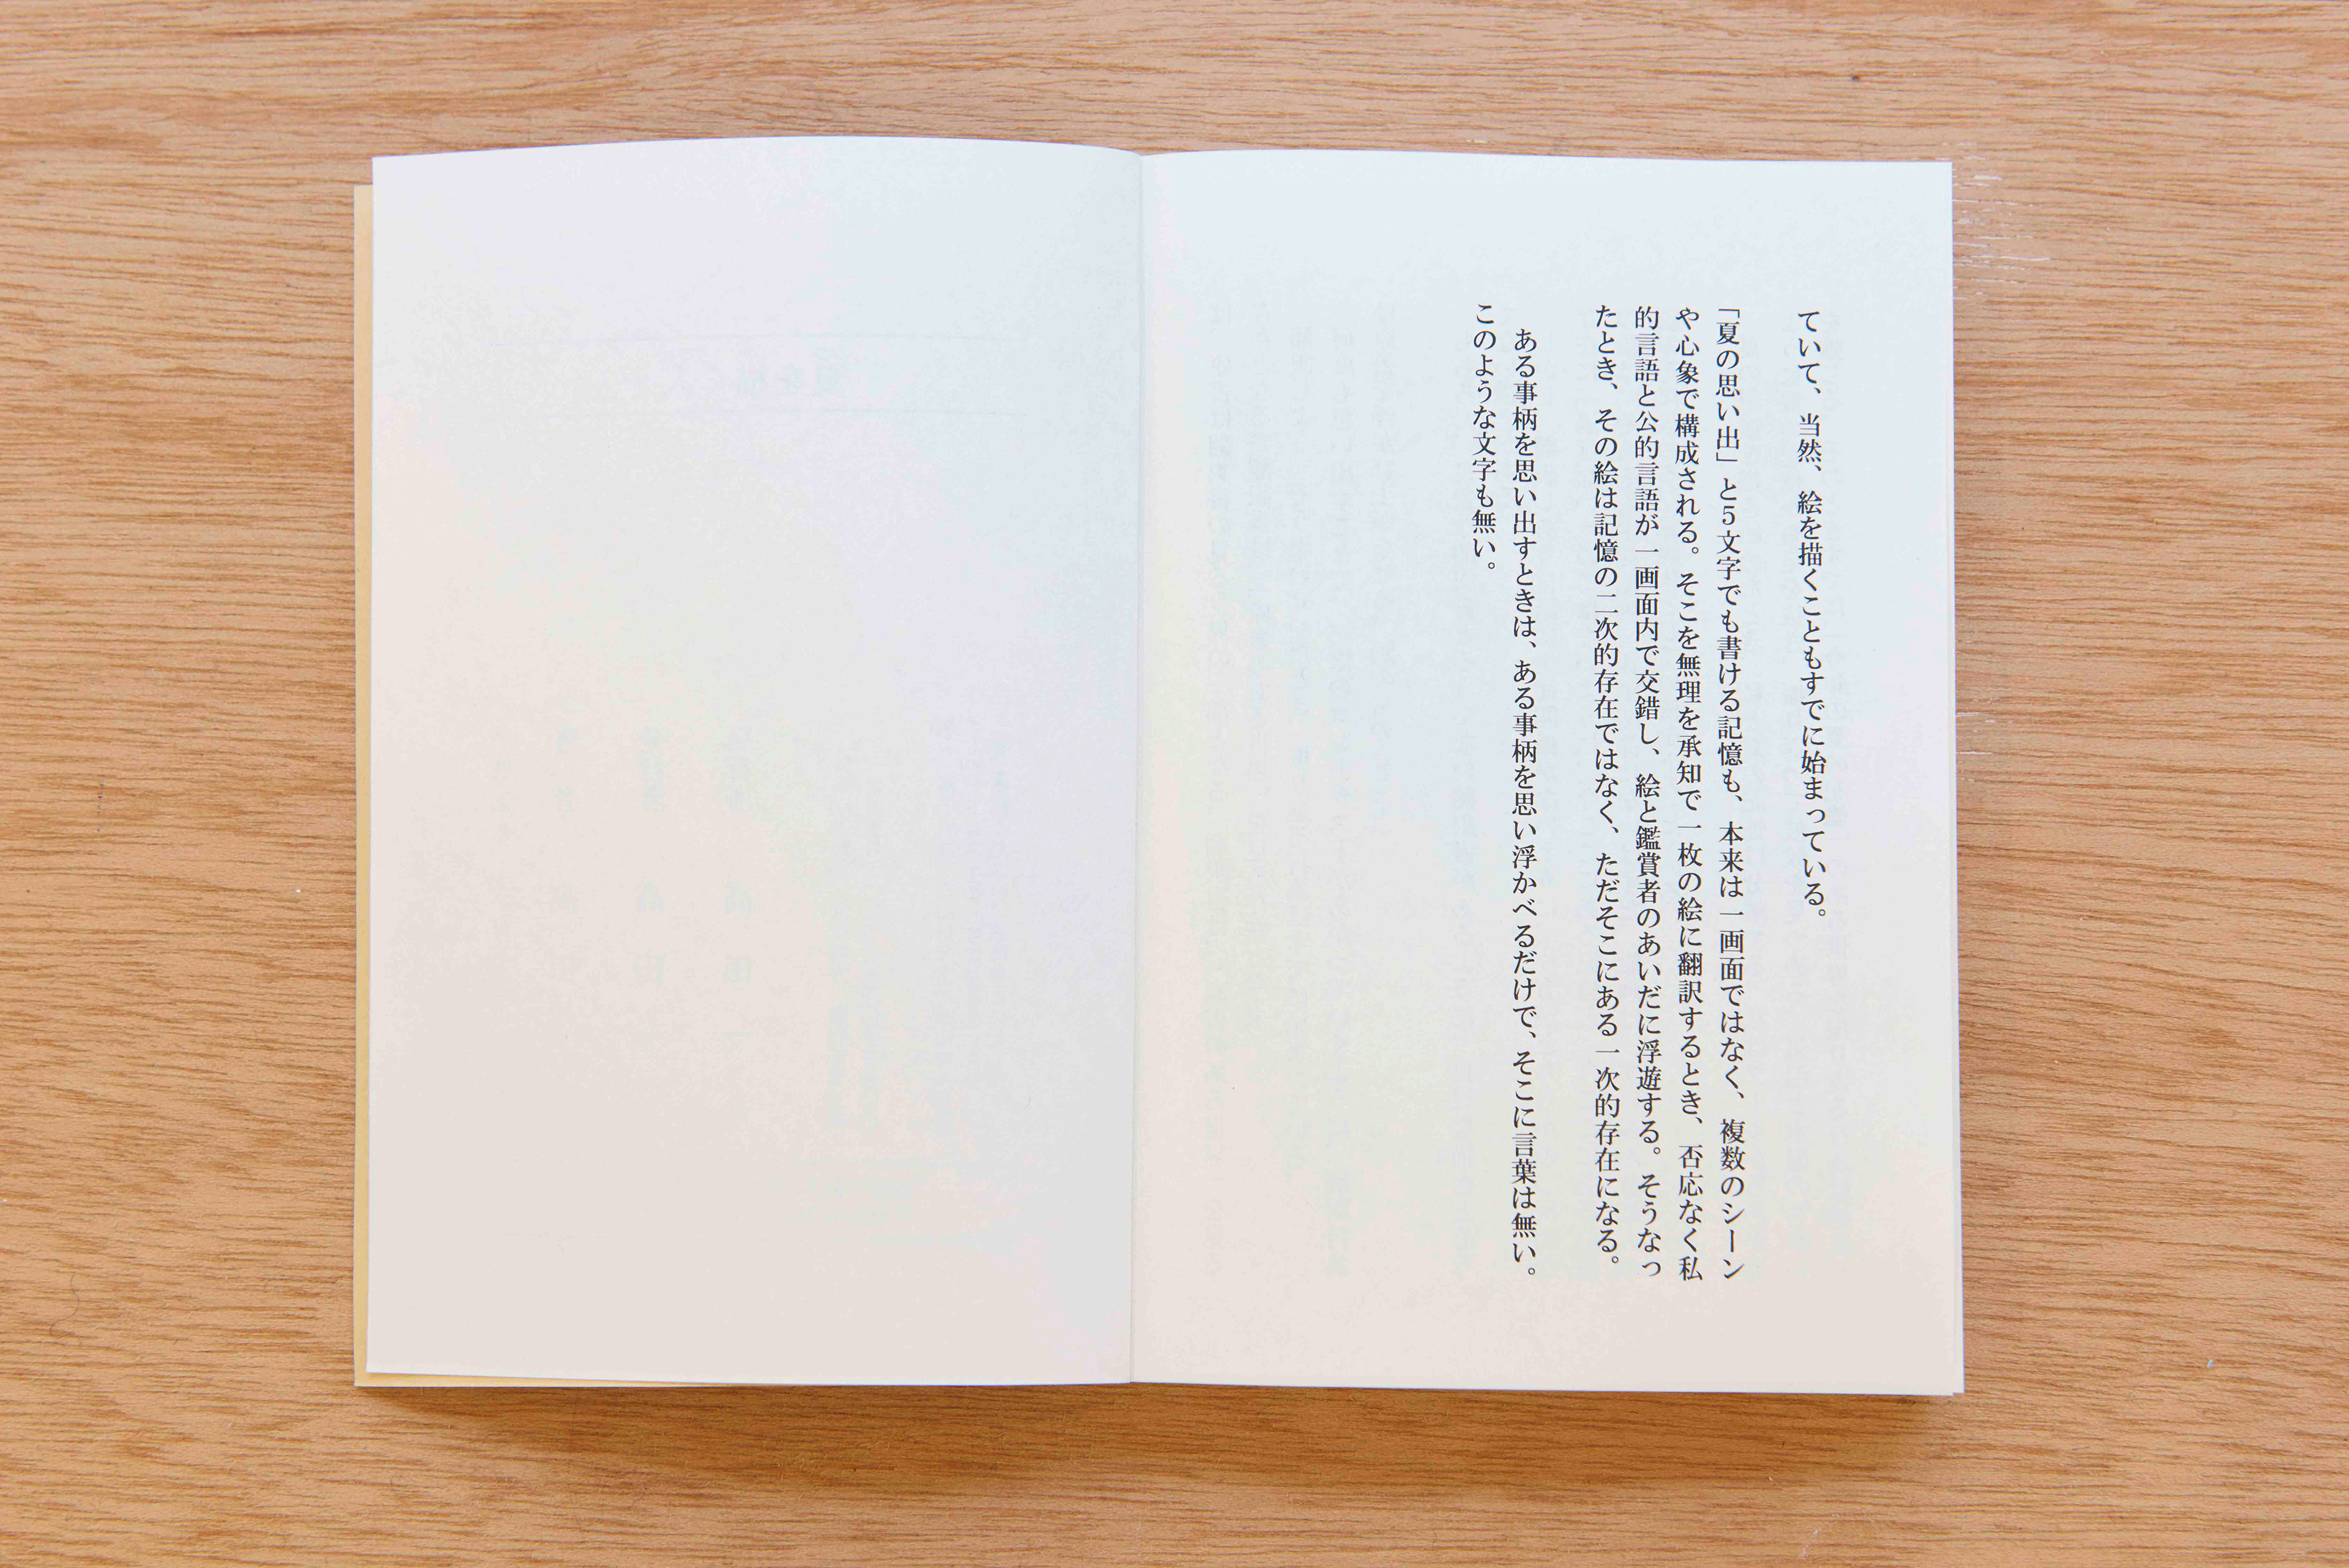 ていて、当然、絵を描くこともすでに始まっている。
「夏の思い出」と5文字でも書ける記憶も、本来は一画面ではなく、複数のシーン
や心象で構成される。そこを無理を承知で一枚の絵に翻訳するとき、否応なく私
的言語と公的言語が一画面内で交錯し、絵と鑑賞者のあいだに浮遊する。そうなっ
たとき、その絵は記憶の二次的存在ではなく、ただそこにある一次的存在になる。
ある事柄を思い出すときは、ある事柄を思い浮かべるだけで、そこに言葉は無い。
このような文字も無い。